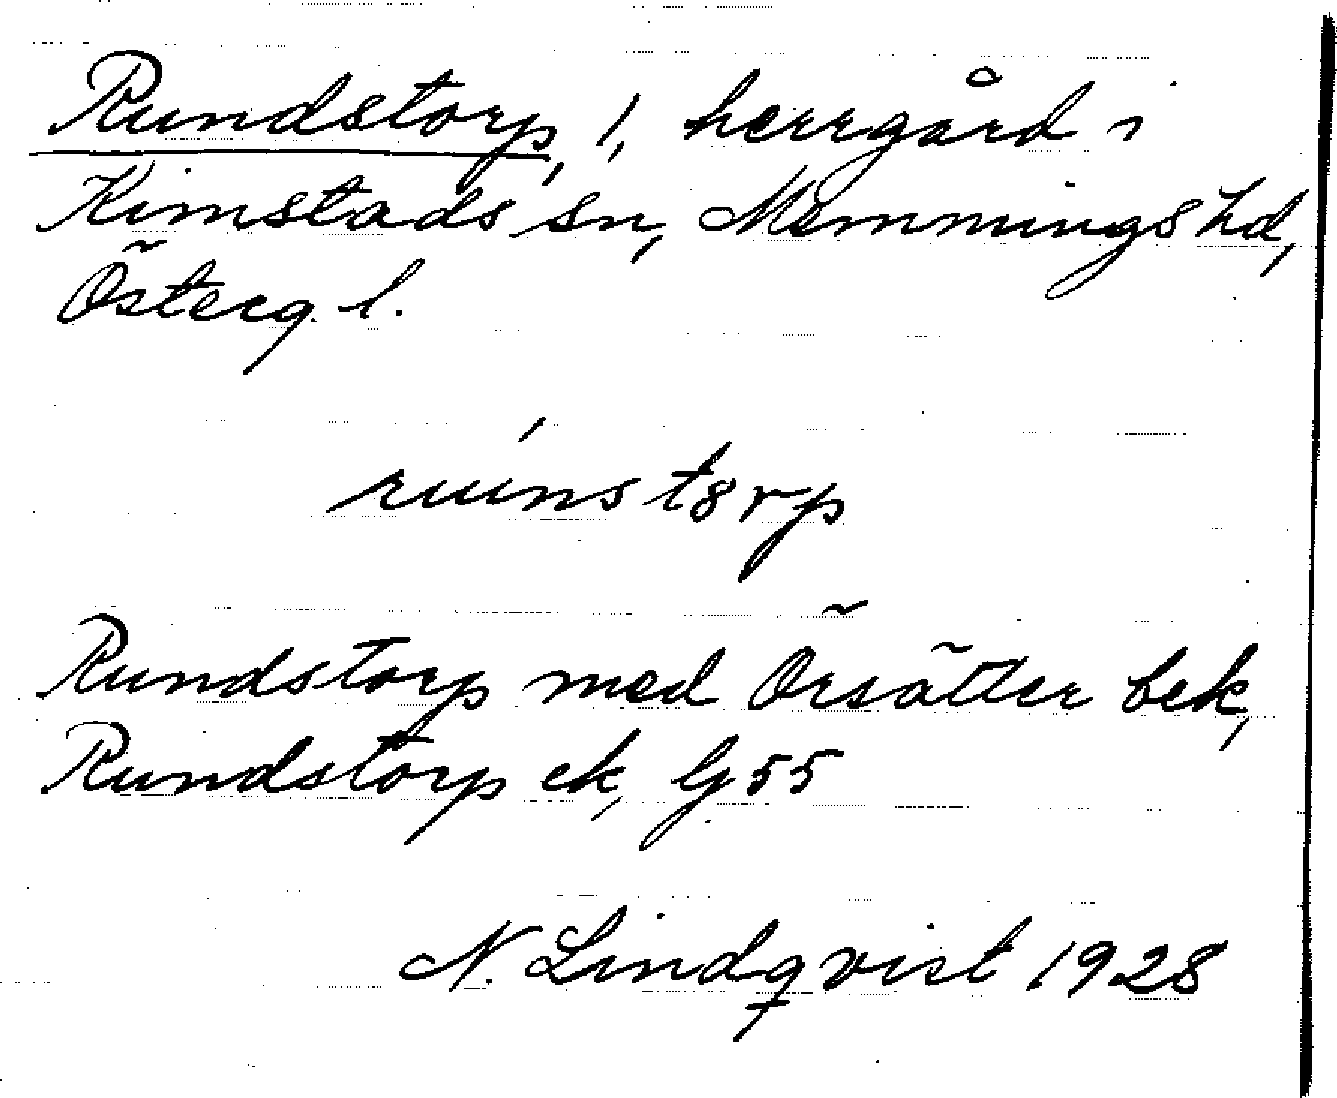 Rundstorp, 1, herrgård i
Kimstads sn, Memmings hd,
Österg. l.
runstorp
Rundstorp med Örsätter bek,
Rundstorp ek, G 55
N. Lindqvist 1928